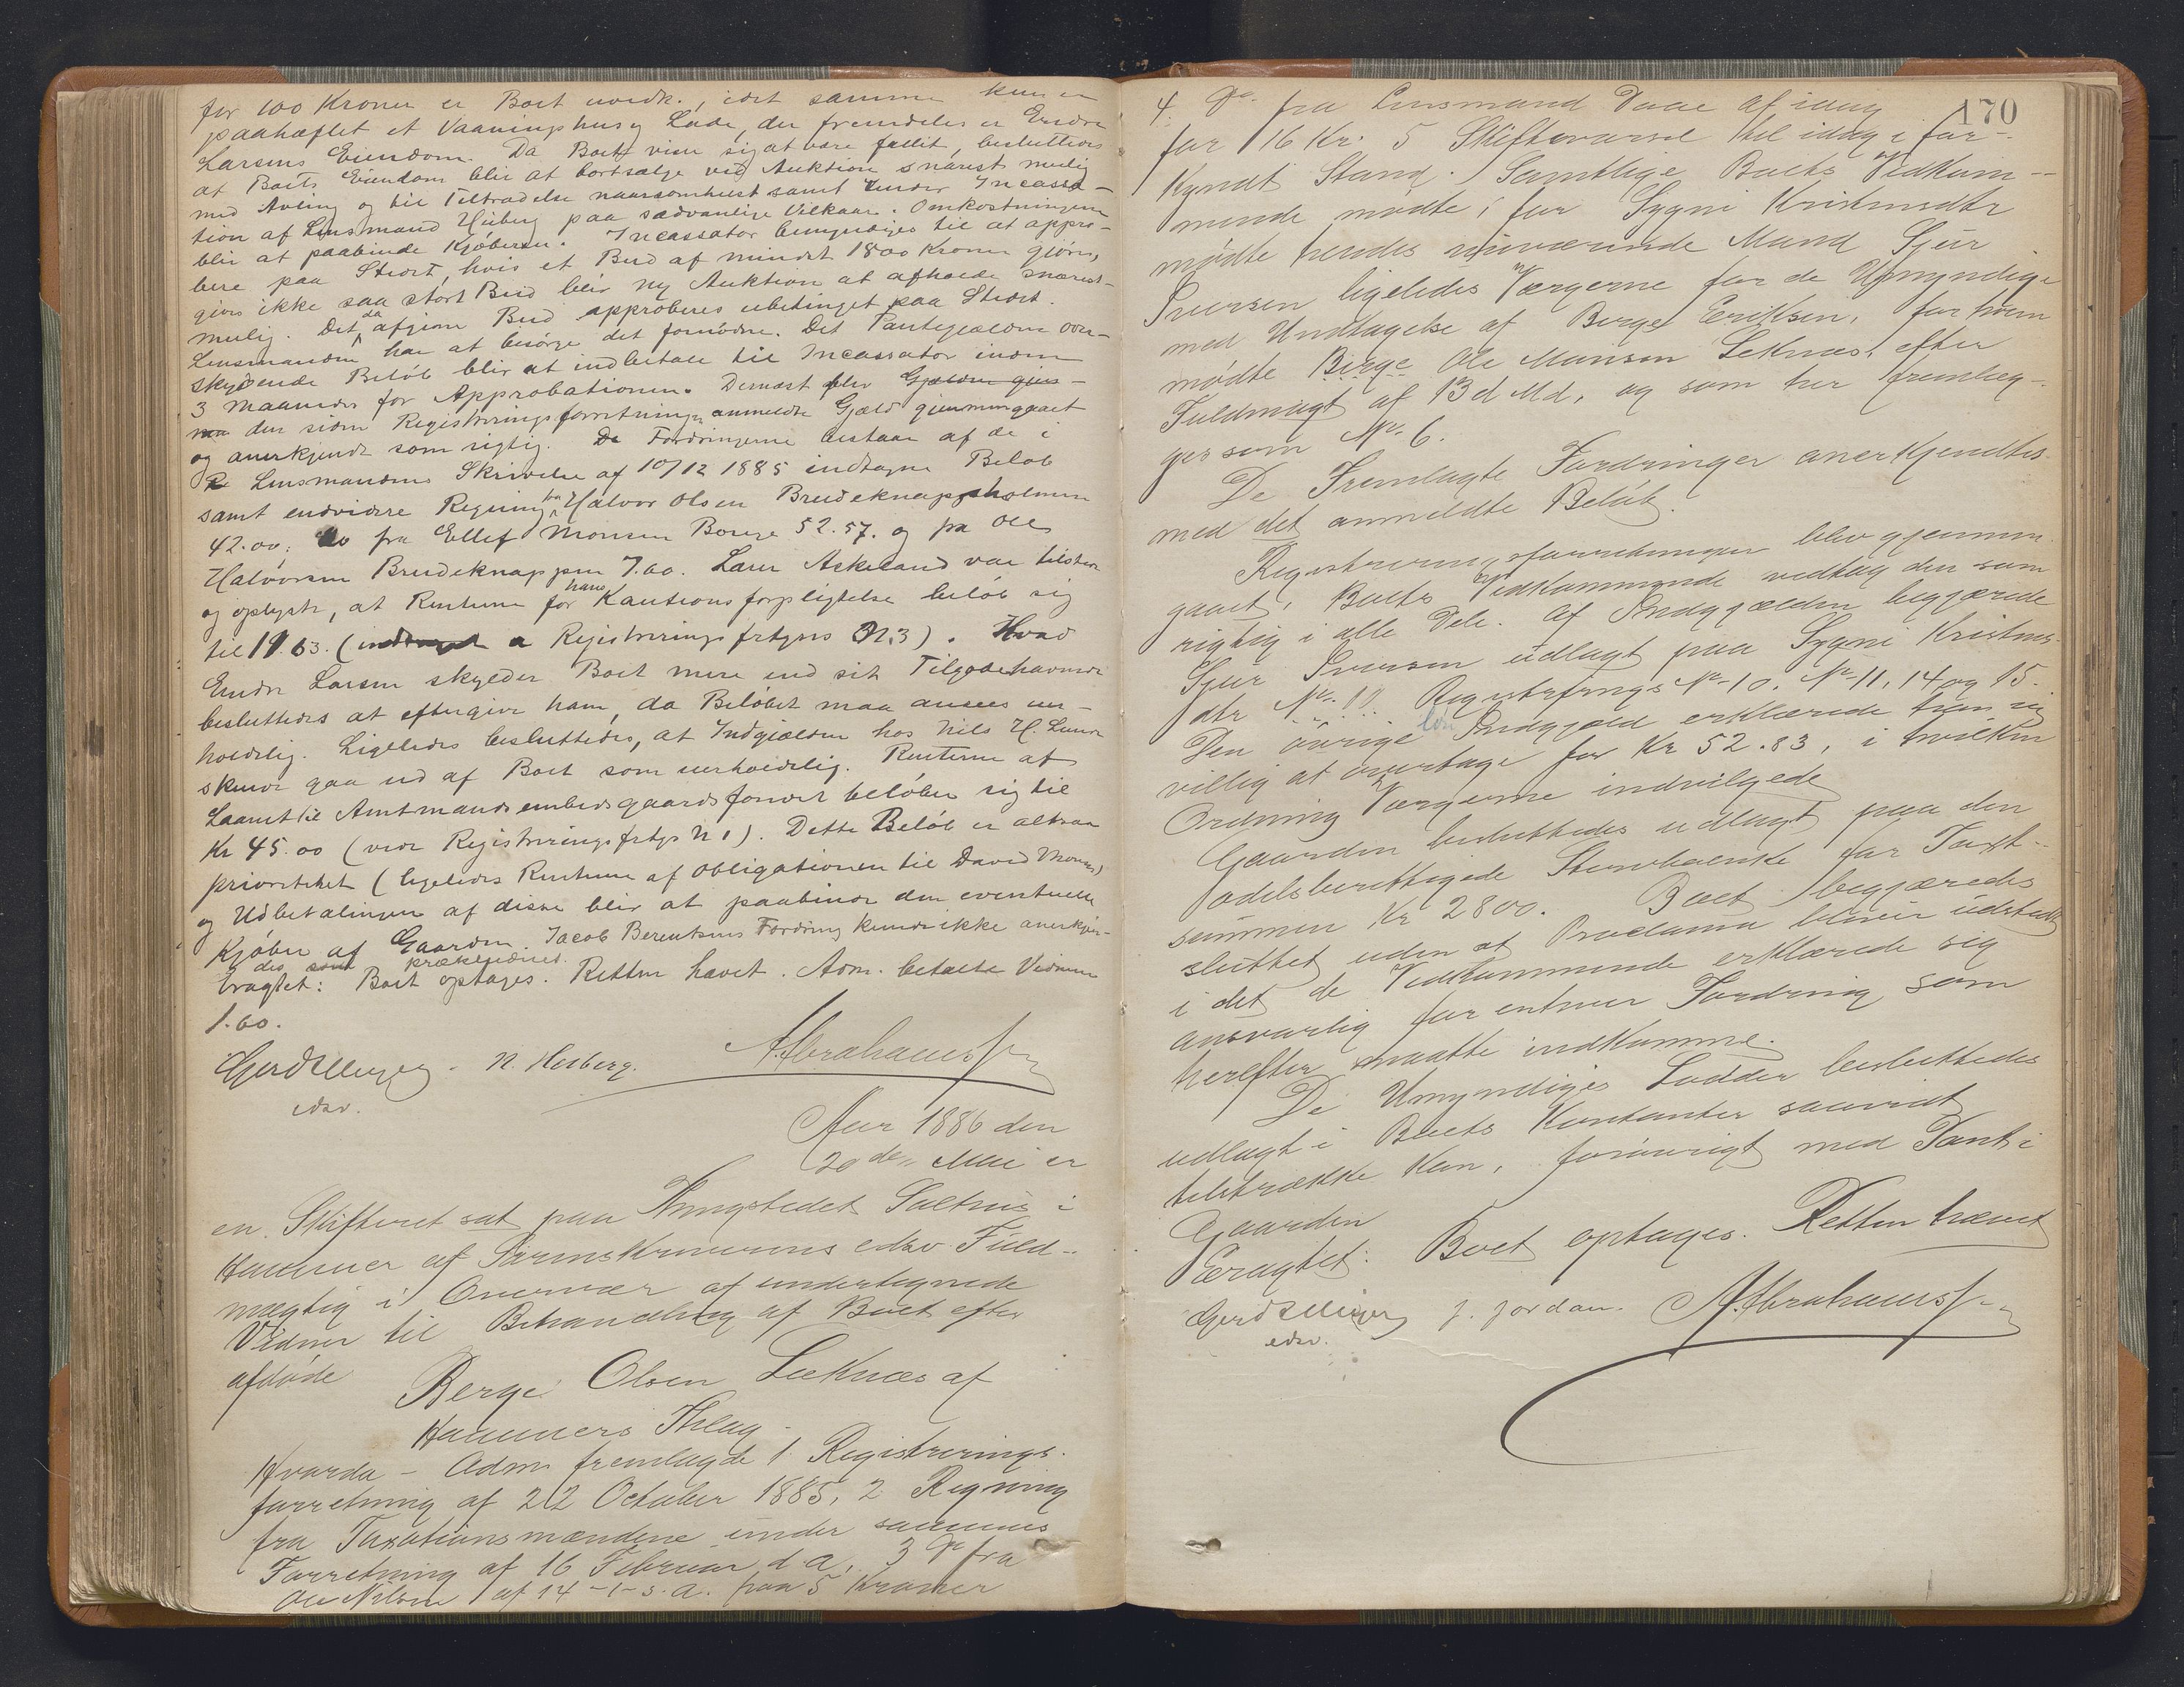 for 100 Kroner er Boet uvedk., idet samme kun er
paahæftet et Vaaningshus og Lade, der fremdeles er Endre
Larsens Eiendom. Da Boet viser sig at være fallit, besluttedes
at Boets Eiendom blir at bortsælge ved Auktion snarest mulig
med Avling og til Tiltrædelse naarsomhelst samt under Incassa-
tion af Lensmand Husberg paa sædvanlige Vilkaar. Omkostningerne
blir at paabinde Kjøberen. Incassator bemyndiges til at appro-
bere paa Stedet, hvis et Bud af mindst 1800 Kroner gjøres,
gives ikke saa stort Bud blir ny Auktion at afholde snarest
mulig. Det da afgivne Bud approberes ubetinget paa Stedet.
Lensmanden har at besørge det fornødne. Det Pantegjælden over-
skydende Beløb blir at indbetale til Incassator inden
3 Maaneder før Approbationen. Dernæst blev Gjælden gjen-
den siden Registreringsforretningen anmeldte Gjæld gjennemgaaet
og anerkjendt som rigtig. De Fordringerne bestaar af de i
Lensmandens Skrivelse af 10/12 1885 indtagne Beløb
samt endvidere Regning fra Halvor Olsen Breideknappholmen
42.00; do fra Ellef Monsen Borge 52.57. og fra Ole
Halvorsen Breideknappen 7.00. Lærer Askeland var tilstede
og oplyste, at Renterne for hans Kautionsforpligtelse beløb sig
til 19.63. (Registreringsfrtgns N. 3). Hvad
Endre Larsen skylder Boet mere end sit Tilgodehavende
besluttedes at eftergive ham, da Beløbet maa ansees uer-
holdelig. Ligeledes besluttedes, at Indgjælden hos Nils H. Lunde
skulde gaa ud af Boet som uerholdelig. Renterne af
Laanet til Amtmandsembedsgaardsfondet beløber sig til
Kr 45.00 (vide Registreringsfrtgs N 1). Dette Beløb er altsaa
prioritetet (ligeledes Renterne af Obligationen til David Monsen)
og Udbetalingen af disse blir at paabinde den eventuelle
Kjøber af Gaarden. Jacob Berentsens Fordring kunde ikke anerkjen-
des som prækluderet.
Eragtet: Boet optages. Retten hævet. Adm. betalte Vidnerne
1.60.
Gerd Ellingsen N. Husberg. A. Abrahamsen
edsv.
Aar 1886 den
20de Mai er
en Skifteret sat paa Thingstedet Salthus i
Hammer af Sorenskriverens edsv Fuld-
mægtig i Overvær af undertegnede
Vidner til Behandling af Boet efter
afdøde
Berge Olsen Leeknæs af
Hammers Thlag.
Hvorda - Adm fremlagde 1 Registrerings-
forretning af 22 October 1885, 2 Regning
fra Taxationsmændene under sammes
Forretning af 16 Februar d.A., 3 Do fra
Ole Nilsen af 14-1-s.A. paa 5 Kroner
170
4. Do. fra Lensmand Daae af idag
for 16 Kr. 5 Skiftevarsel til idag i for-
kyndt Stand. Samtlige Boets Vedkom-
mende mødte, for Sygni Kristensdtr
mødte hendes nuværende Mand Sjur
Iversen ligeledes Værgerne for de Umyndige
med Undtagelse af Berge Eriksen, for hvem
mødte Berge Ole Monsen Leknæs, efter
Fuldmagt af 13 d Md, og som her fremlæg-
ges som No. 6.
De Fremlagte Fordringer anerkjendtes
med det anmeldte Beløb.
Registreringsforretningen blev gjennem-
gaaet, Boets Vedkommende vedtog den som
rigtig i alle Dele. Af Indgjælden begjærede
Sjur Iversen udlagt paa Sygni Kristens-
dtr No. 10. Registrfrngs No 10. No 11, 14 og 15.
Den øvrige Indgjæld erklærede han sig
villig at overtage for Kr 52.83, i hvilken
Ordning Værgerne indvilgede
Gaarden besluttedes udlagt paa den
odelsberettigede for Taxt-
summen Kr 2800. Boet begjæredes
sluttet uden at Proclama bliver udstedt
i det de Vedkommende erklærede sig
ansvarlig for enhver Fordring som
herefter maatte indkomme.
De Umyndiges Lodder besluttedes
udlagt i Boets Kontanter saavidt
tilstrække kan, forøvrigt med Pant i
Gaarden
Eragtet: Boet optages. Retten hævet
Gerd Ellingsen J. Jordan. A. Abrahamsen
edsv.